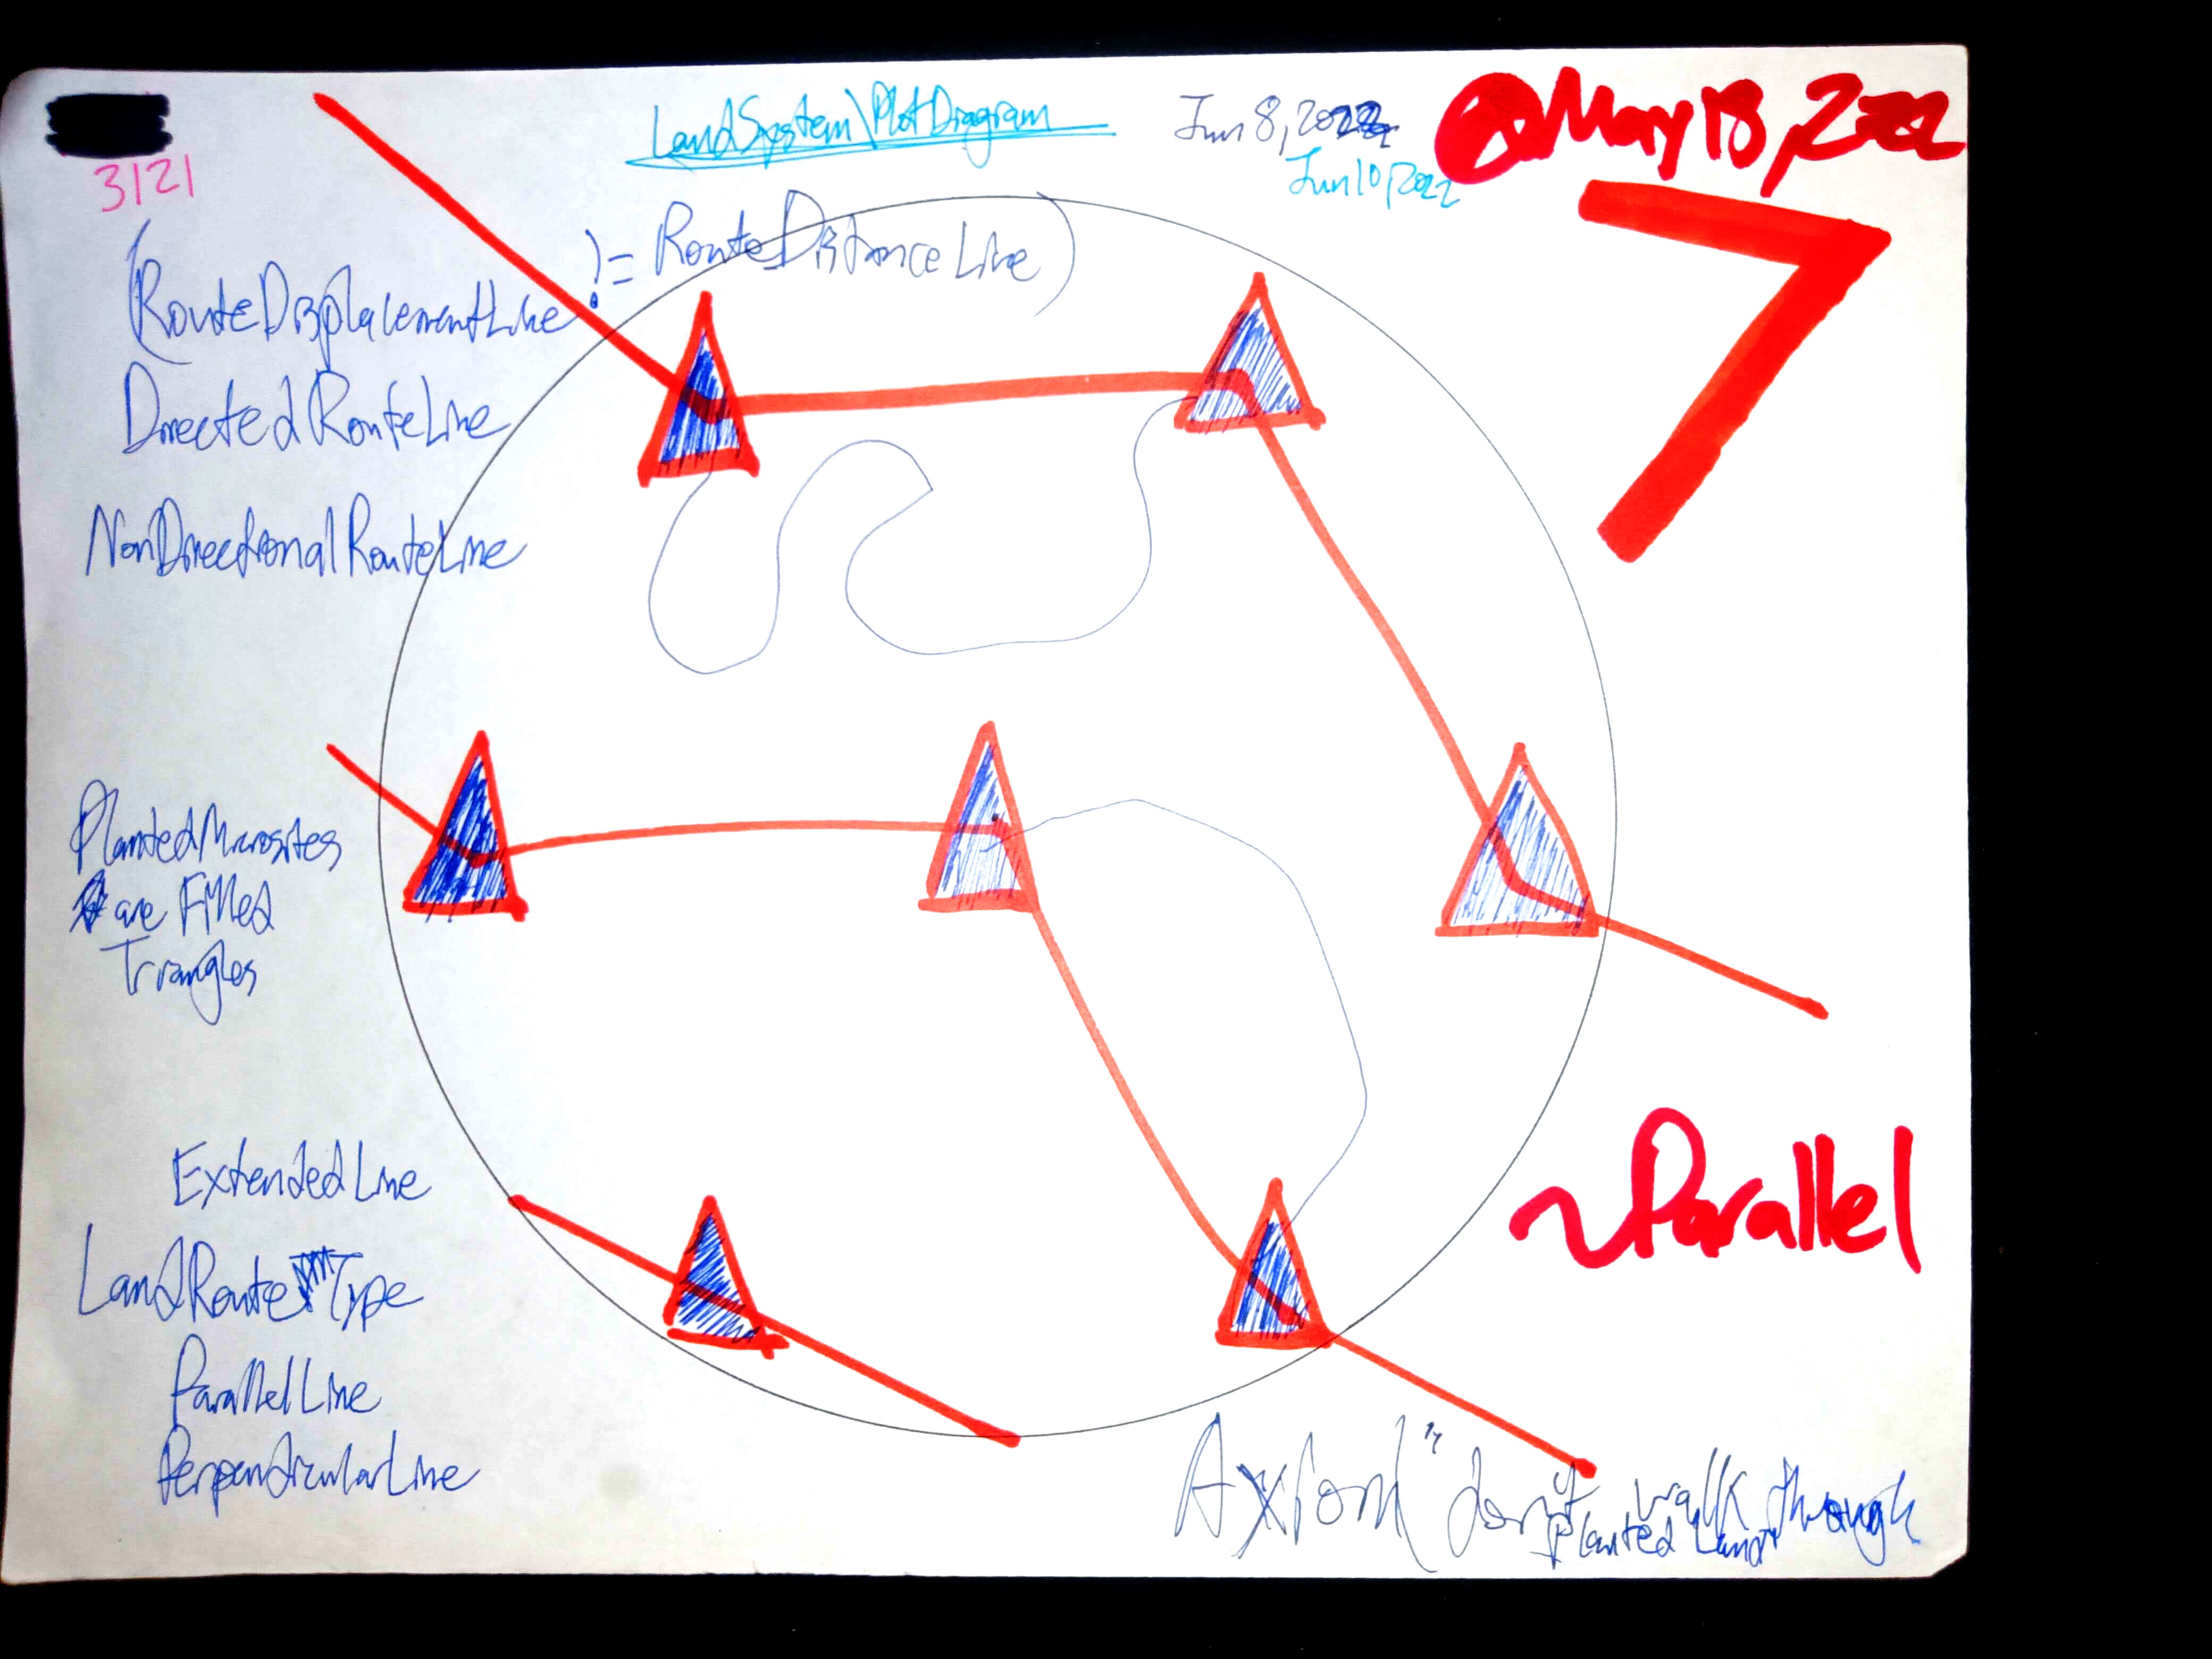 3121
LandSystem\PlotDiagram
Jun 8, 2022
Jun 10, 2022
May 18, 2022
7
(RouteDisplacementLine != RouteDistanceLine)
DirectedRouteLine
NonDirectionalRouteLine
PlantedMicrosites
are Filled
Triangles
ExtendedLine
LandRouteType
ParallelLine
PerpendicularLine
~Parallel
Axiom "don't walk through
planted land"